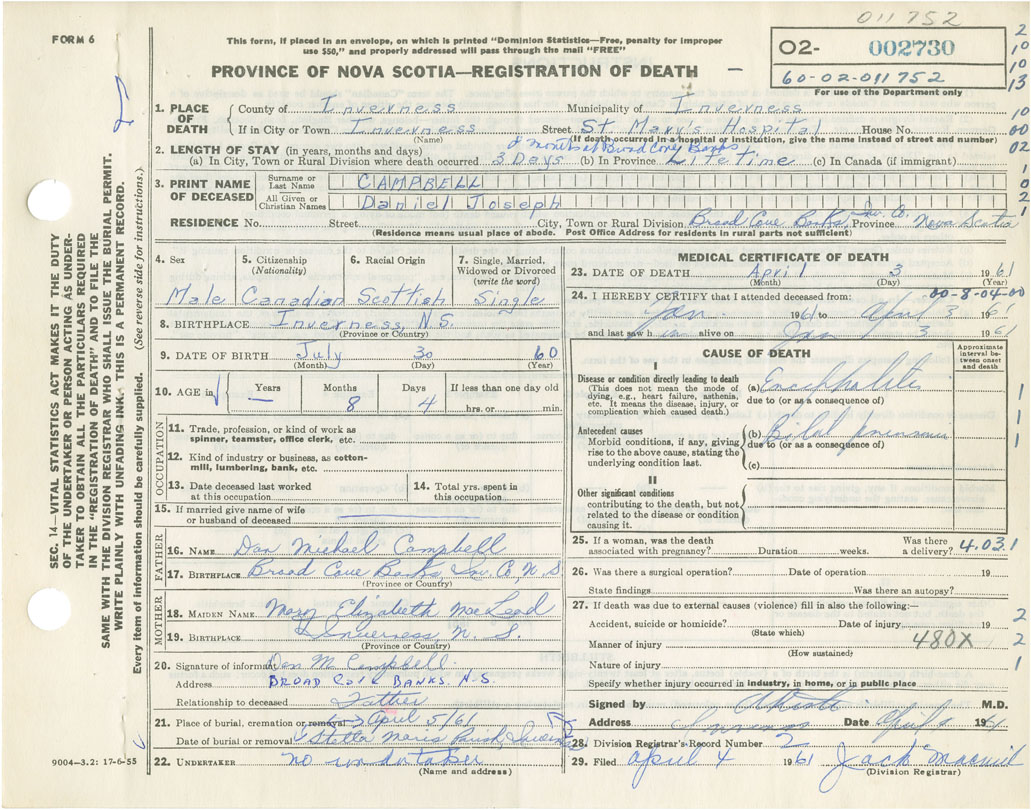 011752
FORM 6
This form, if placed in an envelope, on which is printed "Dominion Statistics—Free, penalty for improper
use $50," and properly addressed will pass through the mail "FREE"
PROVINCE OF NOVA SCOTIA—REGISTRATION OF DEATH
02- 002730
60-02-011752
For use of the Department only
2
10
10
13
1. PLACE OF DEATH
County of Inverness Municipality of Inverness 10
If in City or Town Inverness Street St Mary's Hospital House No. 00
(Name) (If death occurred in a hospital or institution, give the name instead of street and number)
2. LENGTH OF STAY (in years, months and days) 8 months at Broad Cove Banks 02
(a) In City, Town or Rural Division where death occurred 3 Days (b) In Province Lifetime (c) In Canada (if immigrant)
3. PRINT NAME OF DECEASED
Surname or Last Name CAMPBELL 1
0
All Given or Christian Names Daniel Joseph 2
RESIDENCE No. Street City, Town or Rural Division Broad Cove Banks, Inv. Co. Province Nova Scotia 1
(Residence means usual place of abode. Post Office Address for residents in rural parts not sufficient)
4. Sex
Male
5. Citizenship
(Nationality)
Canadian
6. Racial Origin
Scottish
7. Single, Married,
Widowed or Divorced
(write the word)
Single
8. BIRTHPLACE Inverness, N.S.
(Province or Country)
9. DATE OF BIRTH July 30 60
(Month) (Day) (Year)
10. AGE in
Years —
Months 8
Days 4
If less than one day old
hrs. or min.
OCCUPATION
11. Trade, profession, or kind of work as
spinner, teamster, office clerk, etc.
12. Kind of industry or business, as cotton-
mill, lumbering, bank, etc.
13. Date deceased last worked
at this occupation
14. Total yrs. spent in
this occupation
15. If married give name of wife
or husband of deceased
FATHER
16. NAME Dan Michael Campbell
17. BIRTHPLACE Broad Cove Banks, Inv. Co, N.S
(Province or Country)
MOTHER
18. MAIDEN NAME Mary Elizabeth MacLeod
19. BIRTHPLACE Inverness, N. S.
(Province or Country)
20. Signature of informant Dan M. Campbell
Address BROAD COVE BANKS. N.S.
Relationship to deceased Father
21. Place of burial, cremation or removal April 5/61
Date of burial or removal Stella Maris Parish, Inverness
22. UNDERTAKER no undertaker
(Name and address)
MEDICAL CERTIFICATE OF DEATH
23. DATE OF DEATH April 3 1961
(Month) (Day) (Year)
00-8-04-00
24. I HEREBY CERTIFY that I attended deceased from:
Jan. 1961 to April 3 1961
and last saw him alive on 3 1961
CAUSE OF DEATH
Approximate
interval be-
tween onset
and death
I
Disease or condition directly leading to death
(This does not mean the mode of
dying, e.g., heart failure, asthenia,
etc. It means the disease, injury, or
complication which caused death.)
(a) 1
due to (or as a consequence of)
Antecedent causes
Morbid conditions, if any, giving
rise to the above cause, stating the
underlying condition last.
1
(b) pneumonia 1
due to (or as a consequence of)
(c)
II
Other significant conditions
contributing to the death, but not
related to the disease or condition
causing it.
25. If a woman, was the death
associated with pregnancy? Duration weeks. Was there
a delivery? 4.03.1
26. Was there a surgical operation? Date of operation 19
State findings Was there an autopsy?
27. If death was due to external causes (violence) fill in also the following:—
Accident, suicide or homicide? Date of injury 19 2
(State which)
Manner of injury 480X 2
(How sustained)
Nature of injury 1
Specify whether injury occurred in industry, in home, or in public place
Signed by M.D.
Address Inverness Date April 1961
28. Division Registrar's Record Number 2
29. Filed April 4 1961 Jack MacNeil
(Division Registrar)
SEC. 14—VITAL STATISTICS ACT MAKES IT THE DUTY
OF THE UNDERTAKER OR PERSON ACTING AS UNDER-
TAKER TO OBTAIN ALL THE PARTICULARS REQUIRED
IN THE "REGISTRATION OF DEATH" AND TO FILE THE
SAME WITH THE DIVISION REGISTRAR WHO SHALL ISSUE THE BURIAL PERMIT.
WRITE PLAINLY WITH UNFADING INK. THIS IS A PERMANENT RECORD.
Every item of information should be carefully supplied. (See reverse side for instructions.)
9004—3.2: 17-6-55